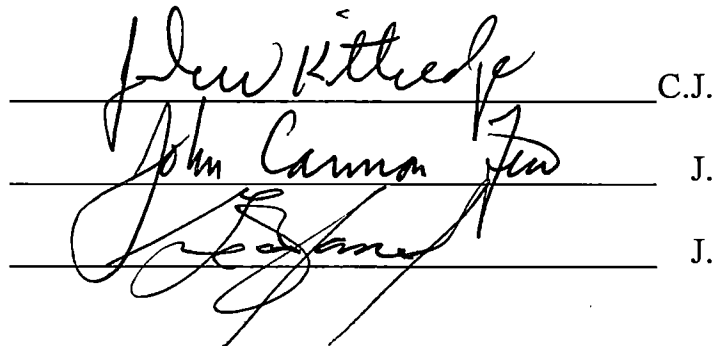 John W Kittredge C.J.
John Cannon Few J.
J.